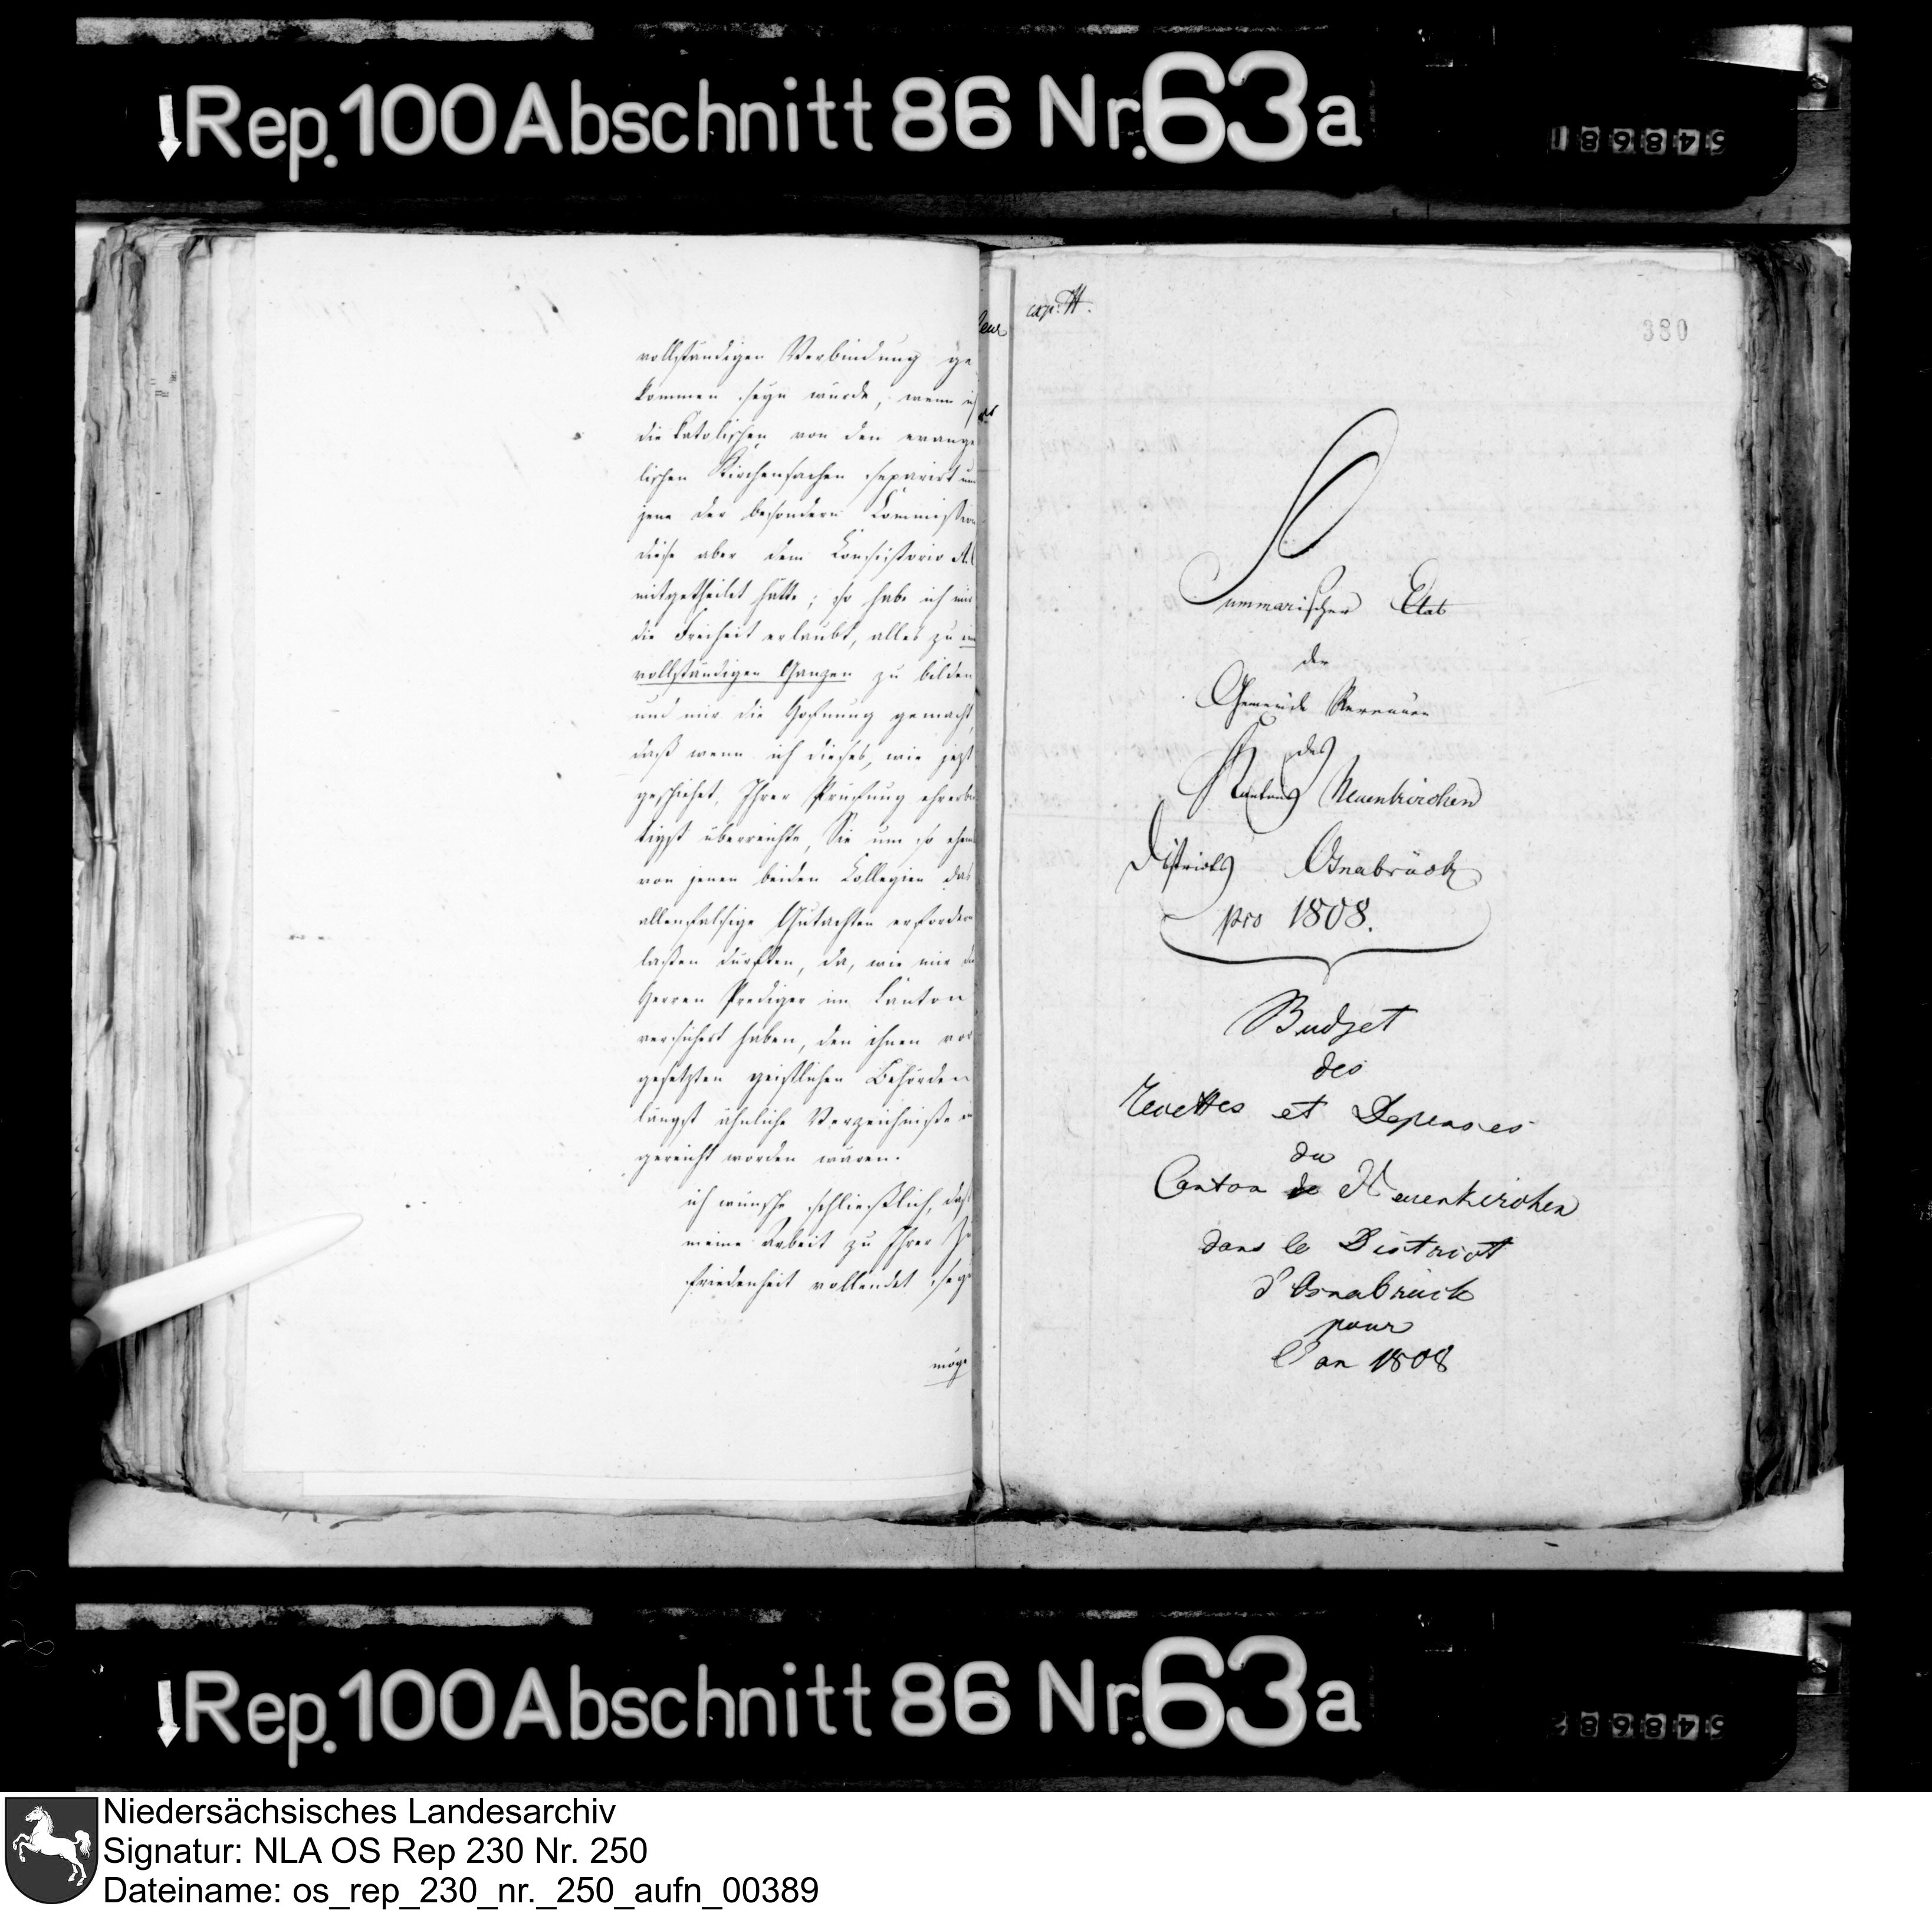 Rep. 100 Abschnitt 86 Nr. 63a
548681
vollständigen Verbindung ge
kommen seyn würde, wenn ich
die katolischen von den evange
lischen Kirchensachen separirt und
jene der besondern Commission
diese aber dem Consistorio A.
mitgetheilet hätte; so habe ich mir
die Freiheit erlaubt, alles zu
vollständigen Ganzen zu bilden
und mir die Hofnung gemacht,
daß wenn ich dieses, wie jezt
geschiehet, Ihrer Prüfung ehrerbie
tigst überreichte, Sie um so eher
von jenen beiden Collegien das
allenfalsige Gutachten erfordern
laßen durften, da, wie mir die
Herren Prediger im Canton
versichert haben, den ihnen vor
gesetzten geistlichen Behörden
längst ähnliche Verzeichniße ein
gereicht worden wären.
ich wünsche schließlich, daß
meine Arbeit zu Ihrer Zu
friedenheit vollendet seyn
möge
380
Summarischer Etat
der
Gemeinde Revenüen
des
Kantons Neuenkirchen
Districts Osnabrück
pro 1808.
Budget
des
Recettes et Depenses
du
Canton de Neuenkirchen
dans le District
d'Osnabruck
pour
l'an 1808
Rep. 100 Abschnitt 86 Nr. 63a
Niedersächsisches Landesarchiv
Signatur: NLA OS Rep 230 Nr. 250
Dateiname: os_rep_230_nr._250_aufn_00389